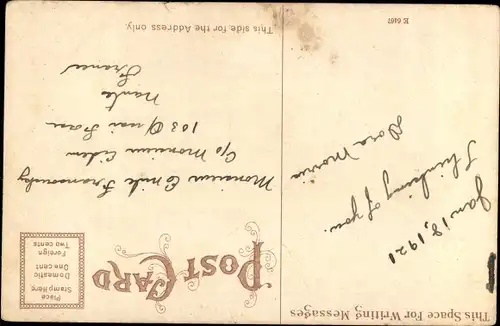 This Space For Writing Messages
Jan 18, 1921
Thinking of you.
Dora Morris
E 6167
POST CARD
Place
Stamp Here
Domestic
One cent
Foreign
Two cents
Monsieur Emile
C/o Monsieur
103 Quai
Nantes
France
This side for the Address only.